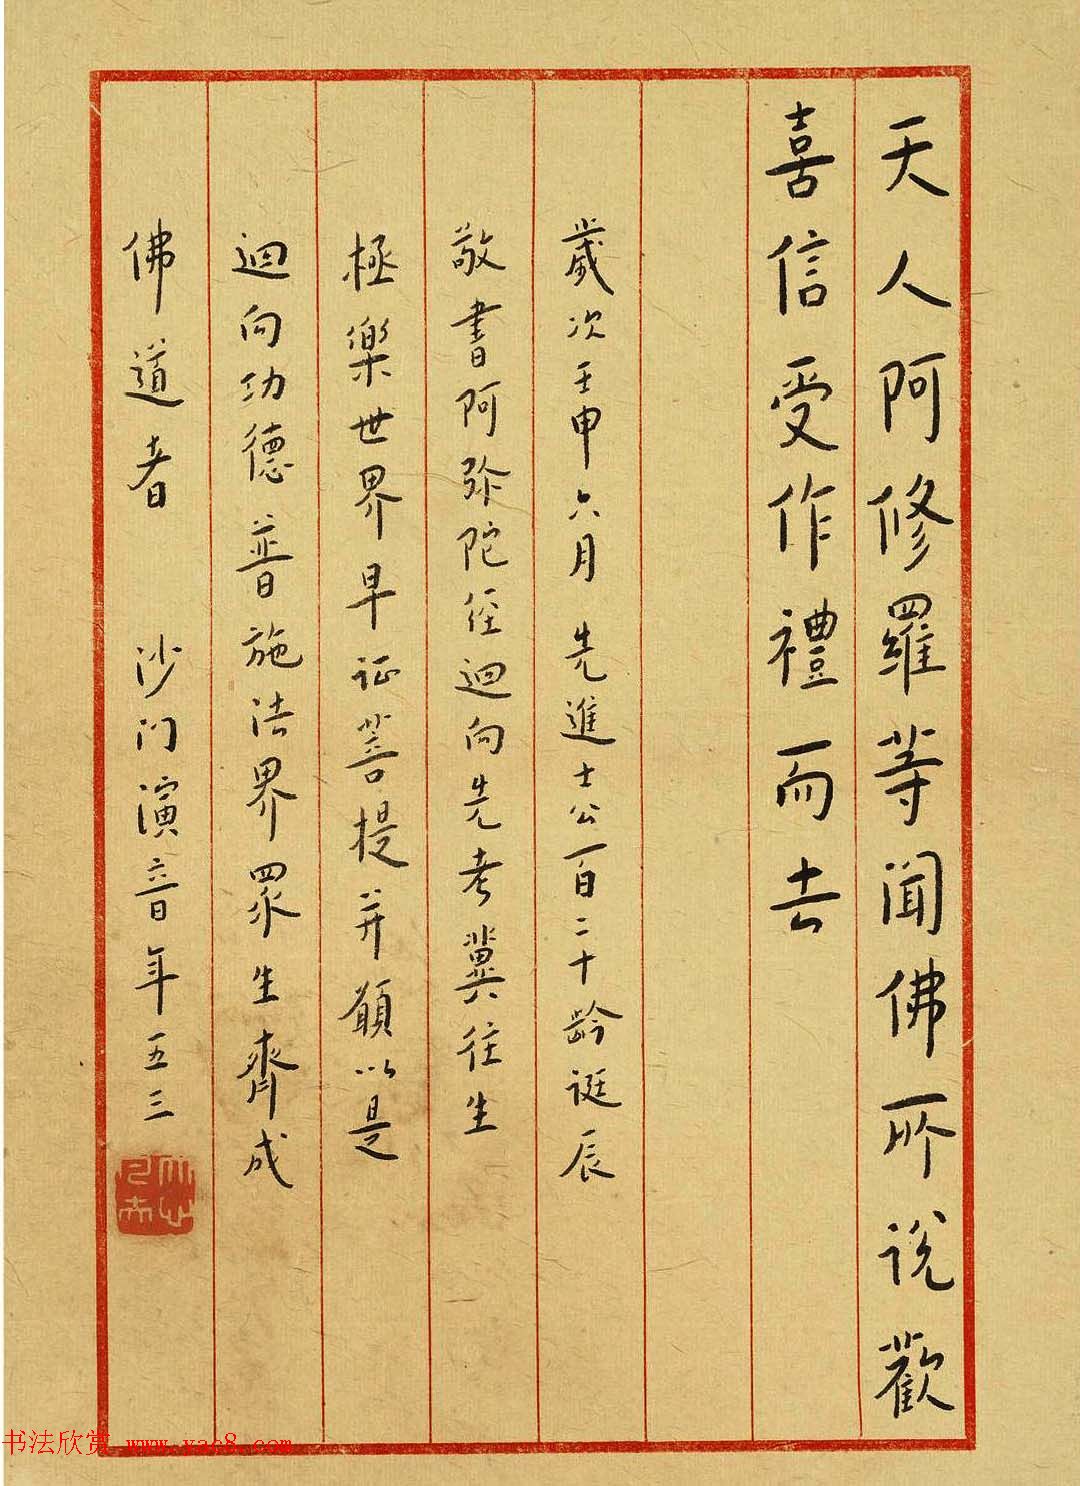 天人阿修羅等聞佛所説歡
喜信受作禮而去
歲次壬申六月先進士公百二十齡誕辰
敬書阿弥陀経迴向先考冀往生
極樂世界早证菩提并願以是
迴向功德普施法界眾生齊成
佛道者 沙门演音年五三
书法欣赏 www.yac8.com